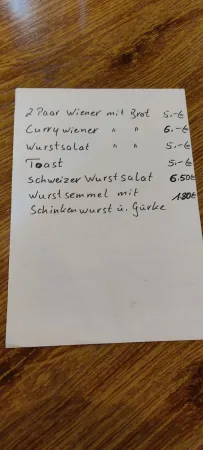 2 Paar Wiener mit Brot 5.-€
Currywiener " " 6.-€
Wurstsalat " " 5.-€
Toast 5.-€
Schweizer Wurstsalat 6.50€
Wurstsemmel mit 1.80€
Schinkenwurst u. Gurke